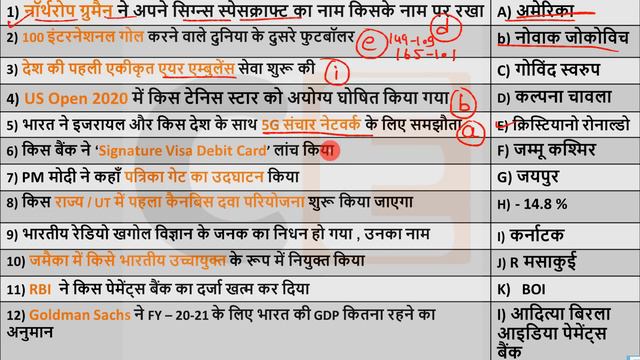 1) नॉर्थरोप ग्रुमैन ने अपने सिग्नस स्पेसक्राफ्ट का नाम किसके नाम पर रखा A) अमेरिका
d
2) 100 इंटरनेशनल गोल करने वाले दुनिया के दुसरे फुटबॉलर b) नोवाक जोकोविच
e 149-109
165-101
3) देश की पहली एकीकृत एयर एम्बुलेंस सेवा शुरू की i C) गोविंद स्वरुप
4) US Open 2020 में किस टेनिस स्टार को अयोग्य घोषित किया गया b D) कल्पना चावला
5) भारत ने इजरायल और किस देश के साथ 5G संचार नेटवर्क के लिए समझौता a E) क्रिस्टियानो रोनाल्डो
6) किस बैंक ने ‘Signature Visa Debit Card’ लांच किया F) जम्मू कश्मिर
7) PM मोदी ने कहाँ पत्रिका गेट का उदघाटन किया G) जयपुर
8) किस राज्य / UT में पहला कैनबिस दवा परियोजना शुरू किया जाएगा H) - 14.8 %
9) भारतीय रेडियो खगोल विज्ञान के जनक का निधन हो गया , उनका नाम I) कर्नाटक
10) जमैका में किसे भारतीय उच्चायुक्त के रूप में नियुक्त किया J) R मसाकुई
11) RBI ने किस पेमेंट्स बैंक का दर्जा खत्म कर दिया K) BOI
12) Goldman Sachs ने FY – 20-21 के लिए भारत की GDP कितना रहने का l) आदित्या बिरला
अनुमान आइडिया पेमेंट्स
बैंक